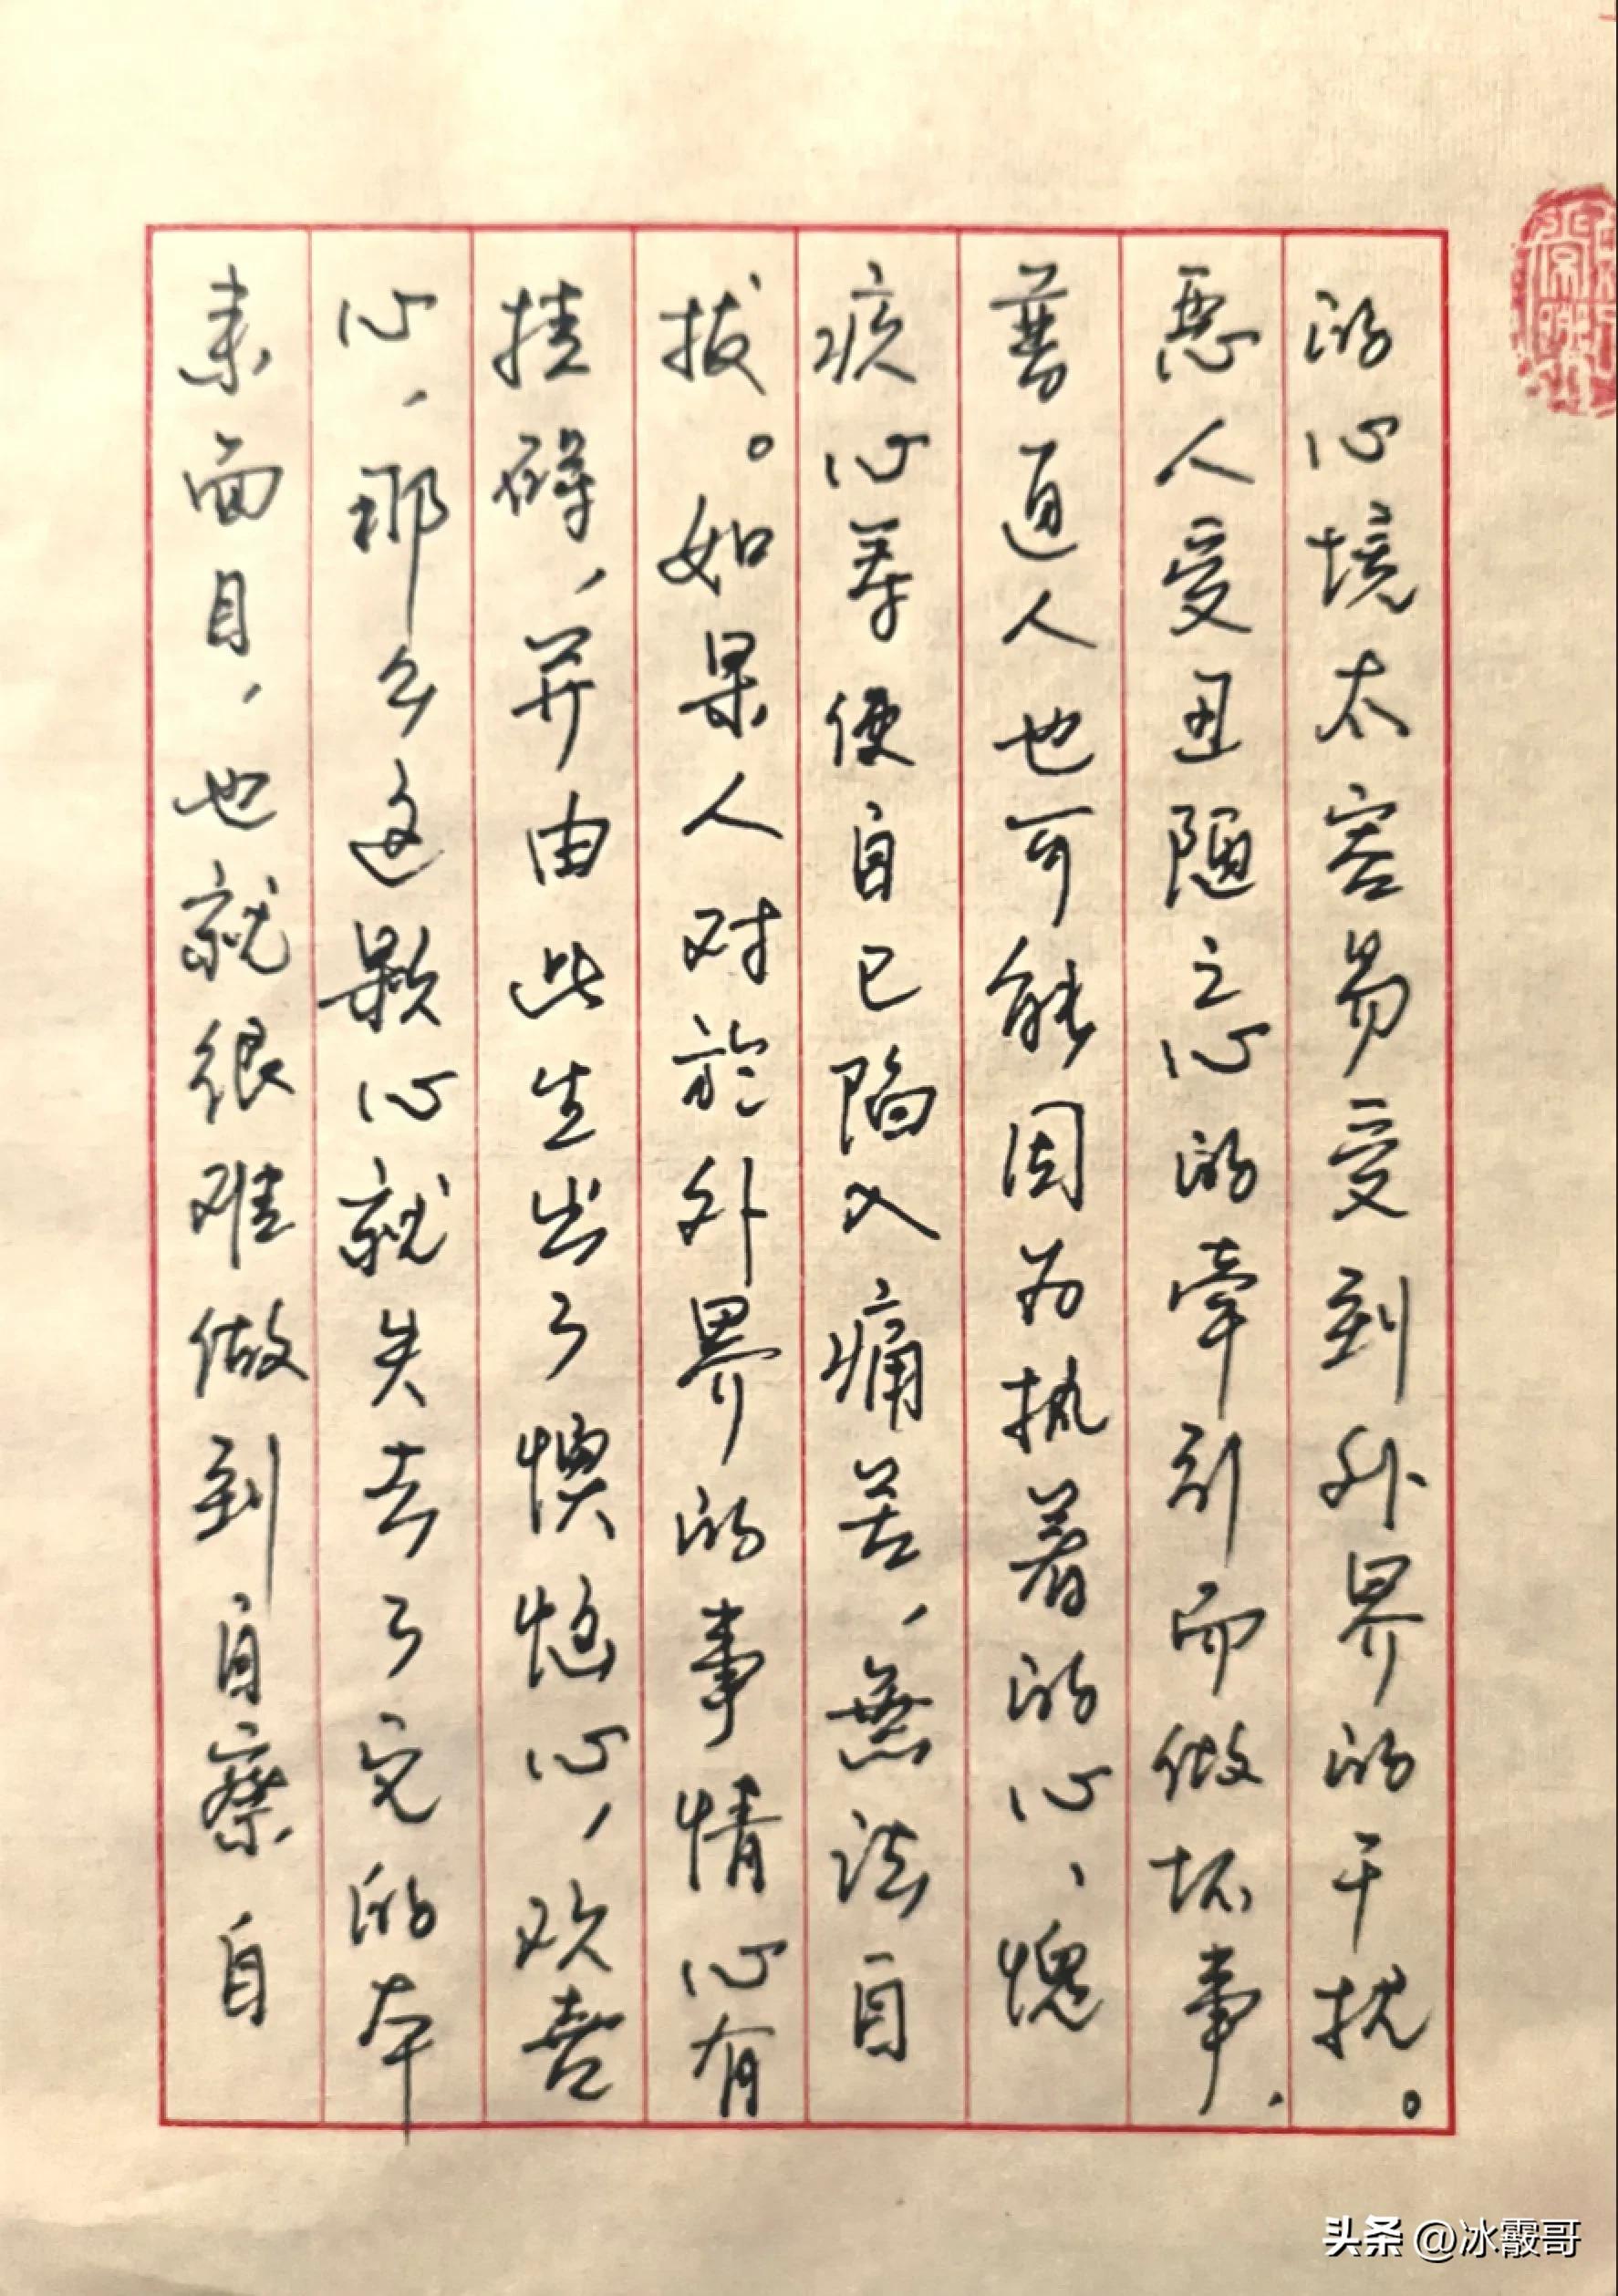 的心境太容易受到外界的干扰。
恶人受丑陋之心的牵引而做坏事，
普通人也可能因为执着的心、愧
疚心等使自己陷入痛苦，無法自
拔。如果人对於外界的事情心有
挂碍，并由此生出了懊恼心，欢喜
心，那么这颗心就失去了它的本
来面目，也就很难做到自察自
头条 @冰霰哥